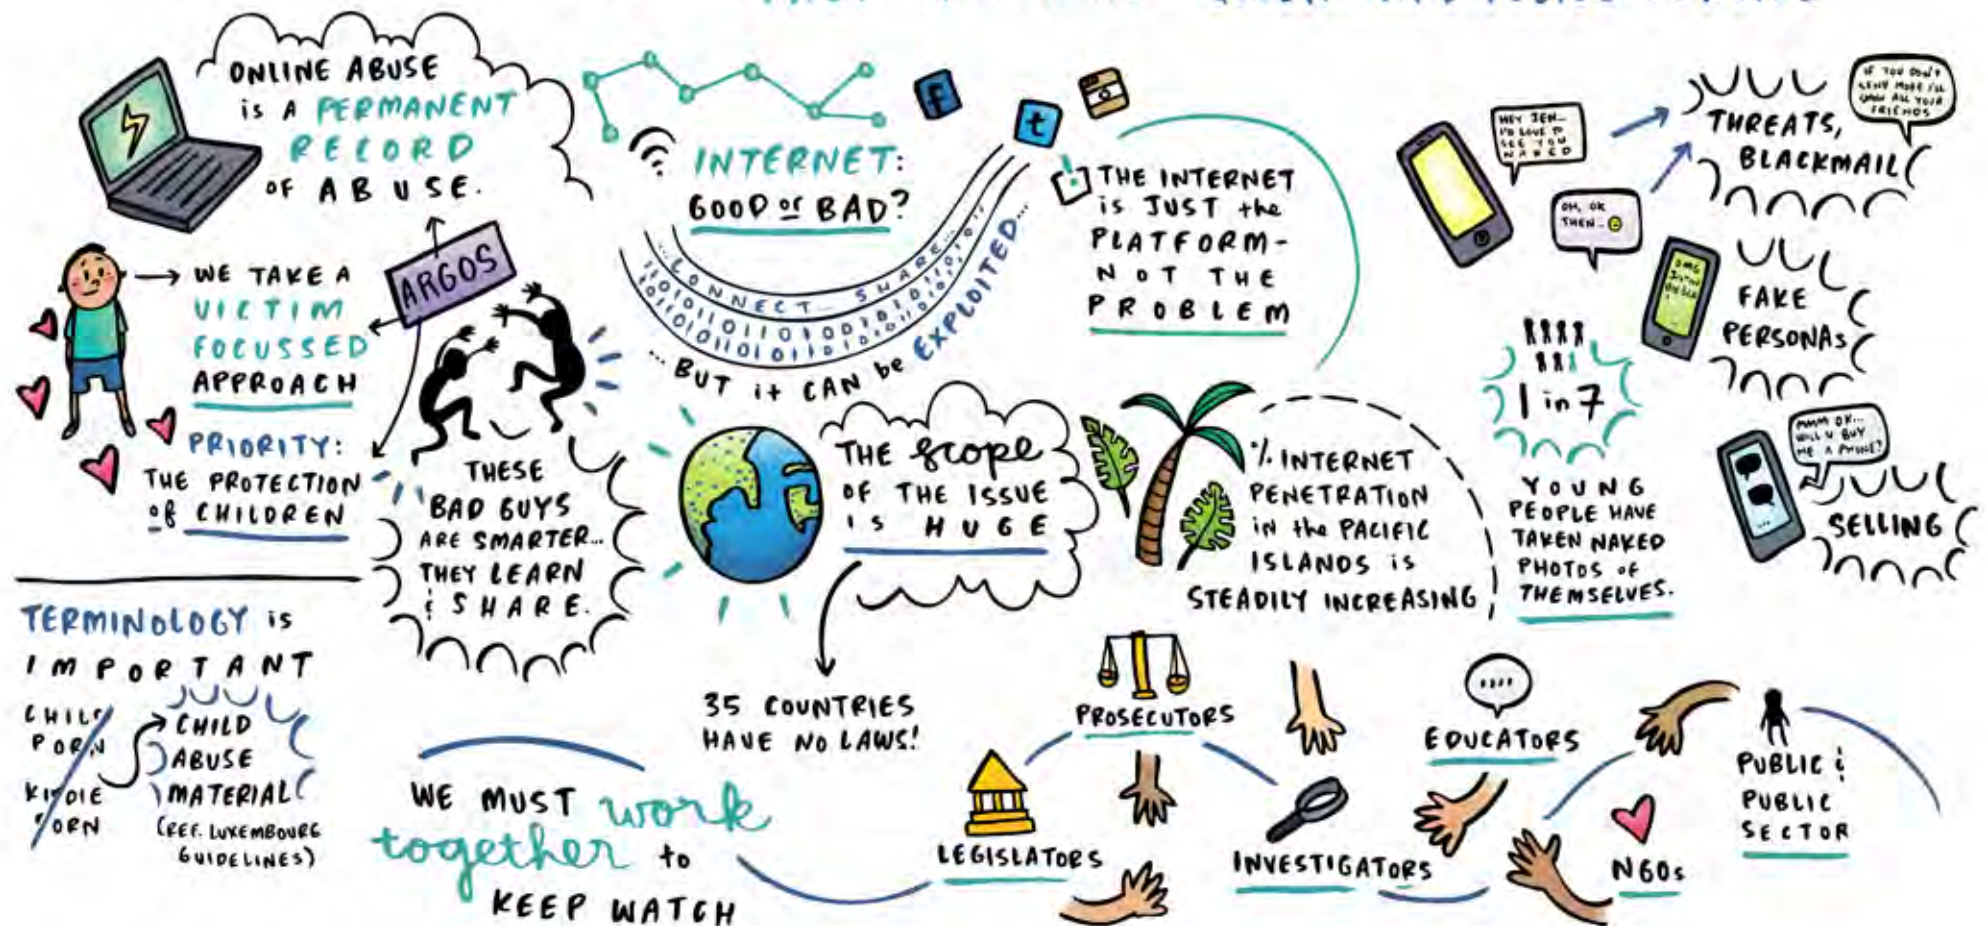 ONLINE ABUSE
is A PERMANENT
RECORD
OF ABUSE.
ARGOS
WE TAKE A
VICTIM
FOCUSSED
APPROACH
PRIORITY:
THE PROTECTION
of CHILDREN
THESE
BAD GUYS
ARE SMARTER...
THEY LEARN
& SHARE.
TERMINOLOGY is
IMPORTANT
CHILD
PORN
KIDDIE
PORN
CHILD
ABUSE
MATERIAL
(REF. LUXEMBOURG
GUIDELINES)
INTERNET:
GOOD or BAD?
f
t
...CONNECT... SHARE...
...BUT it CAN be EXPLOITED...
THE INTERNET
is JUST the
PLATFORM-
NOT THE
PROBLEM
THE scope
OF THE ISSUE
IS HUGE
35 COUNTRIES
HAVE NO LAWS!
% INTERNET
PENETRATION
in the PACIFIC
ISLANDS is
STEADILY INCREASING
HEY JEN...
I'D LOVE TO
SEE YOU
NAKED
OH, OK
THEN...
THREATS,
BLACKMAIL
IF YOU DON'T
SEND MORE I'LL
SHOW ALL YOUR
FRIENDS
FAKE
PERSONAS
1 in 7
YOUNG
PEOPLE HAVE
TAKEN NAKED
PHOTOS OF
THEMSELVES.
MMM OK...
WILL U BUY
ME A PHONE?
SELLING
WE MUST work
together to
KEEP WATCH
LEGISLATORS
PROSECUTORS
INVESTIGATORS
EDUCATORS
NGOs
PUBLIC &
PUBLIC
SECTOR